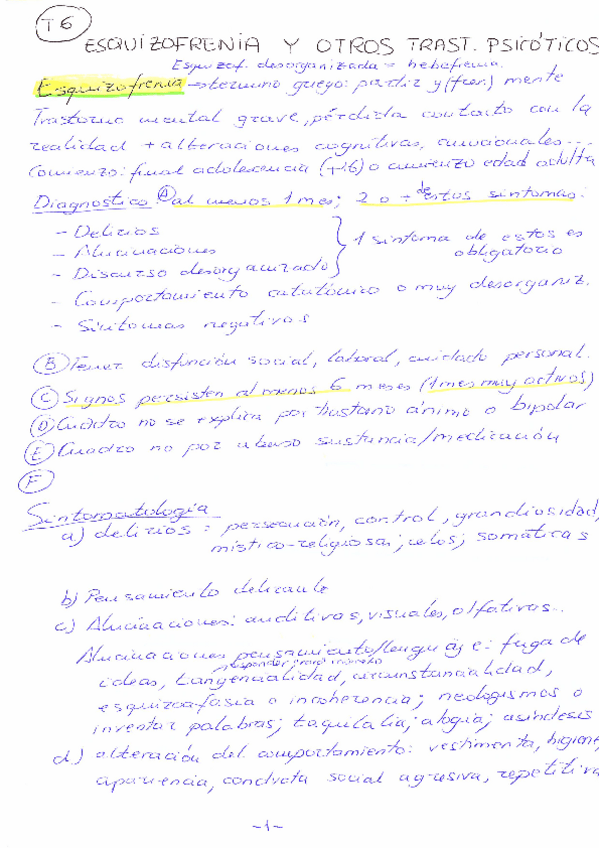 T6
ESQUIZOFRENIA Y OTROS TRAST. PSICÓTICOS
Esquizof. desorganizada = hebefrenia.
Esquizofrenia → término griego: partir y (fren) mente
Trastorno mental grave, pérdida contacto con la
realidad + alteraciones cognitivas, emocionales...
Comienzo: final adolescencia (+16) o comienzo edad adulta
Diagnostico: A al menos 1 mes; 2 o + de estos sintomas:
- Delirios
- Alucinaciones
- Discurso desorganizado
1 sintoma de estos es
obligatorio
- Comportamiento catatónico o muy desorganiz.
- Síntomas negativos
B Tener disfunción social, laboral, cuidado personal.
C Signos persisten al menos 6 meses (1 mes muy activos)
D Cuadro no se explica por trastorno ánimo o bipolar
E Cuadro no por abuso sustancia/medicación
F
Sintomatología
a) delirios: persecución, control, grandiosidad,
místico-religiosa; celos; somáticas
b) Pensamiento delirante
c) Alucinaciones: auditivas, visuales, olfativas..
Alucinaciones pensamiento/lenguaje: fuga de
responder
ideas, tangencialidad, circunstancialidad,
esquizoafasia o incoherencia; neologismos o
inventar palabras; taquilalia; alogia; asindesis
d) alteración del comportamiento: vestimenta, higiene,
apariencia, conducta social agresiva, repetitiva
-1-